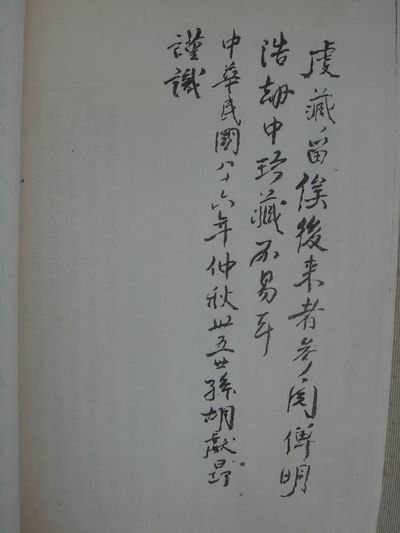 虔藏留俟後来者参阅俾明
浩劫中珍藏不易耳
中華民國八十六年仲秋卅五世孫胡獻
謹識